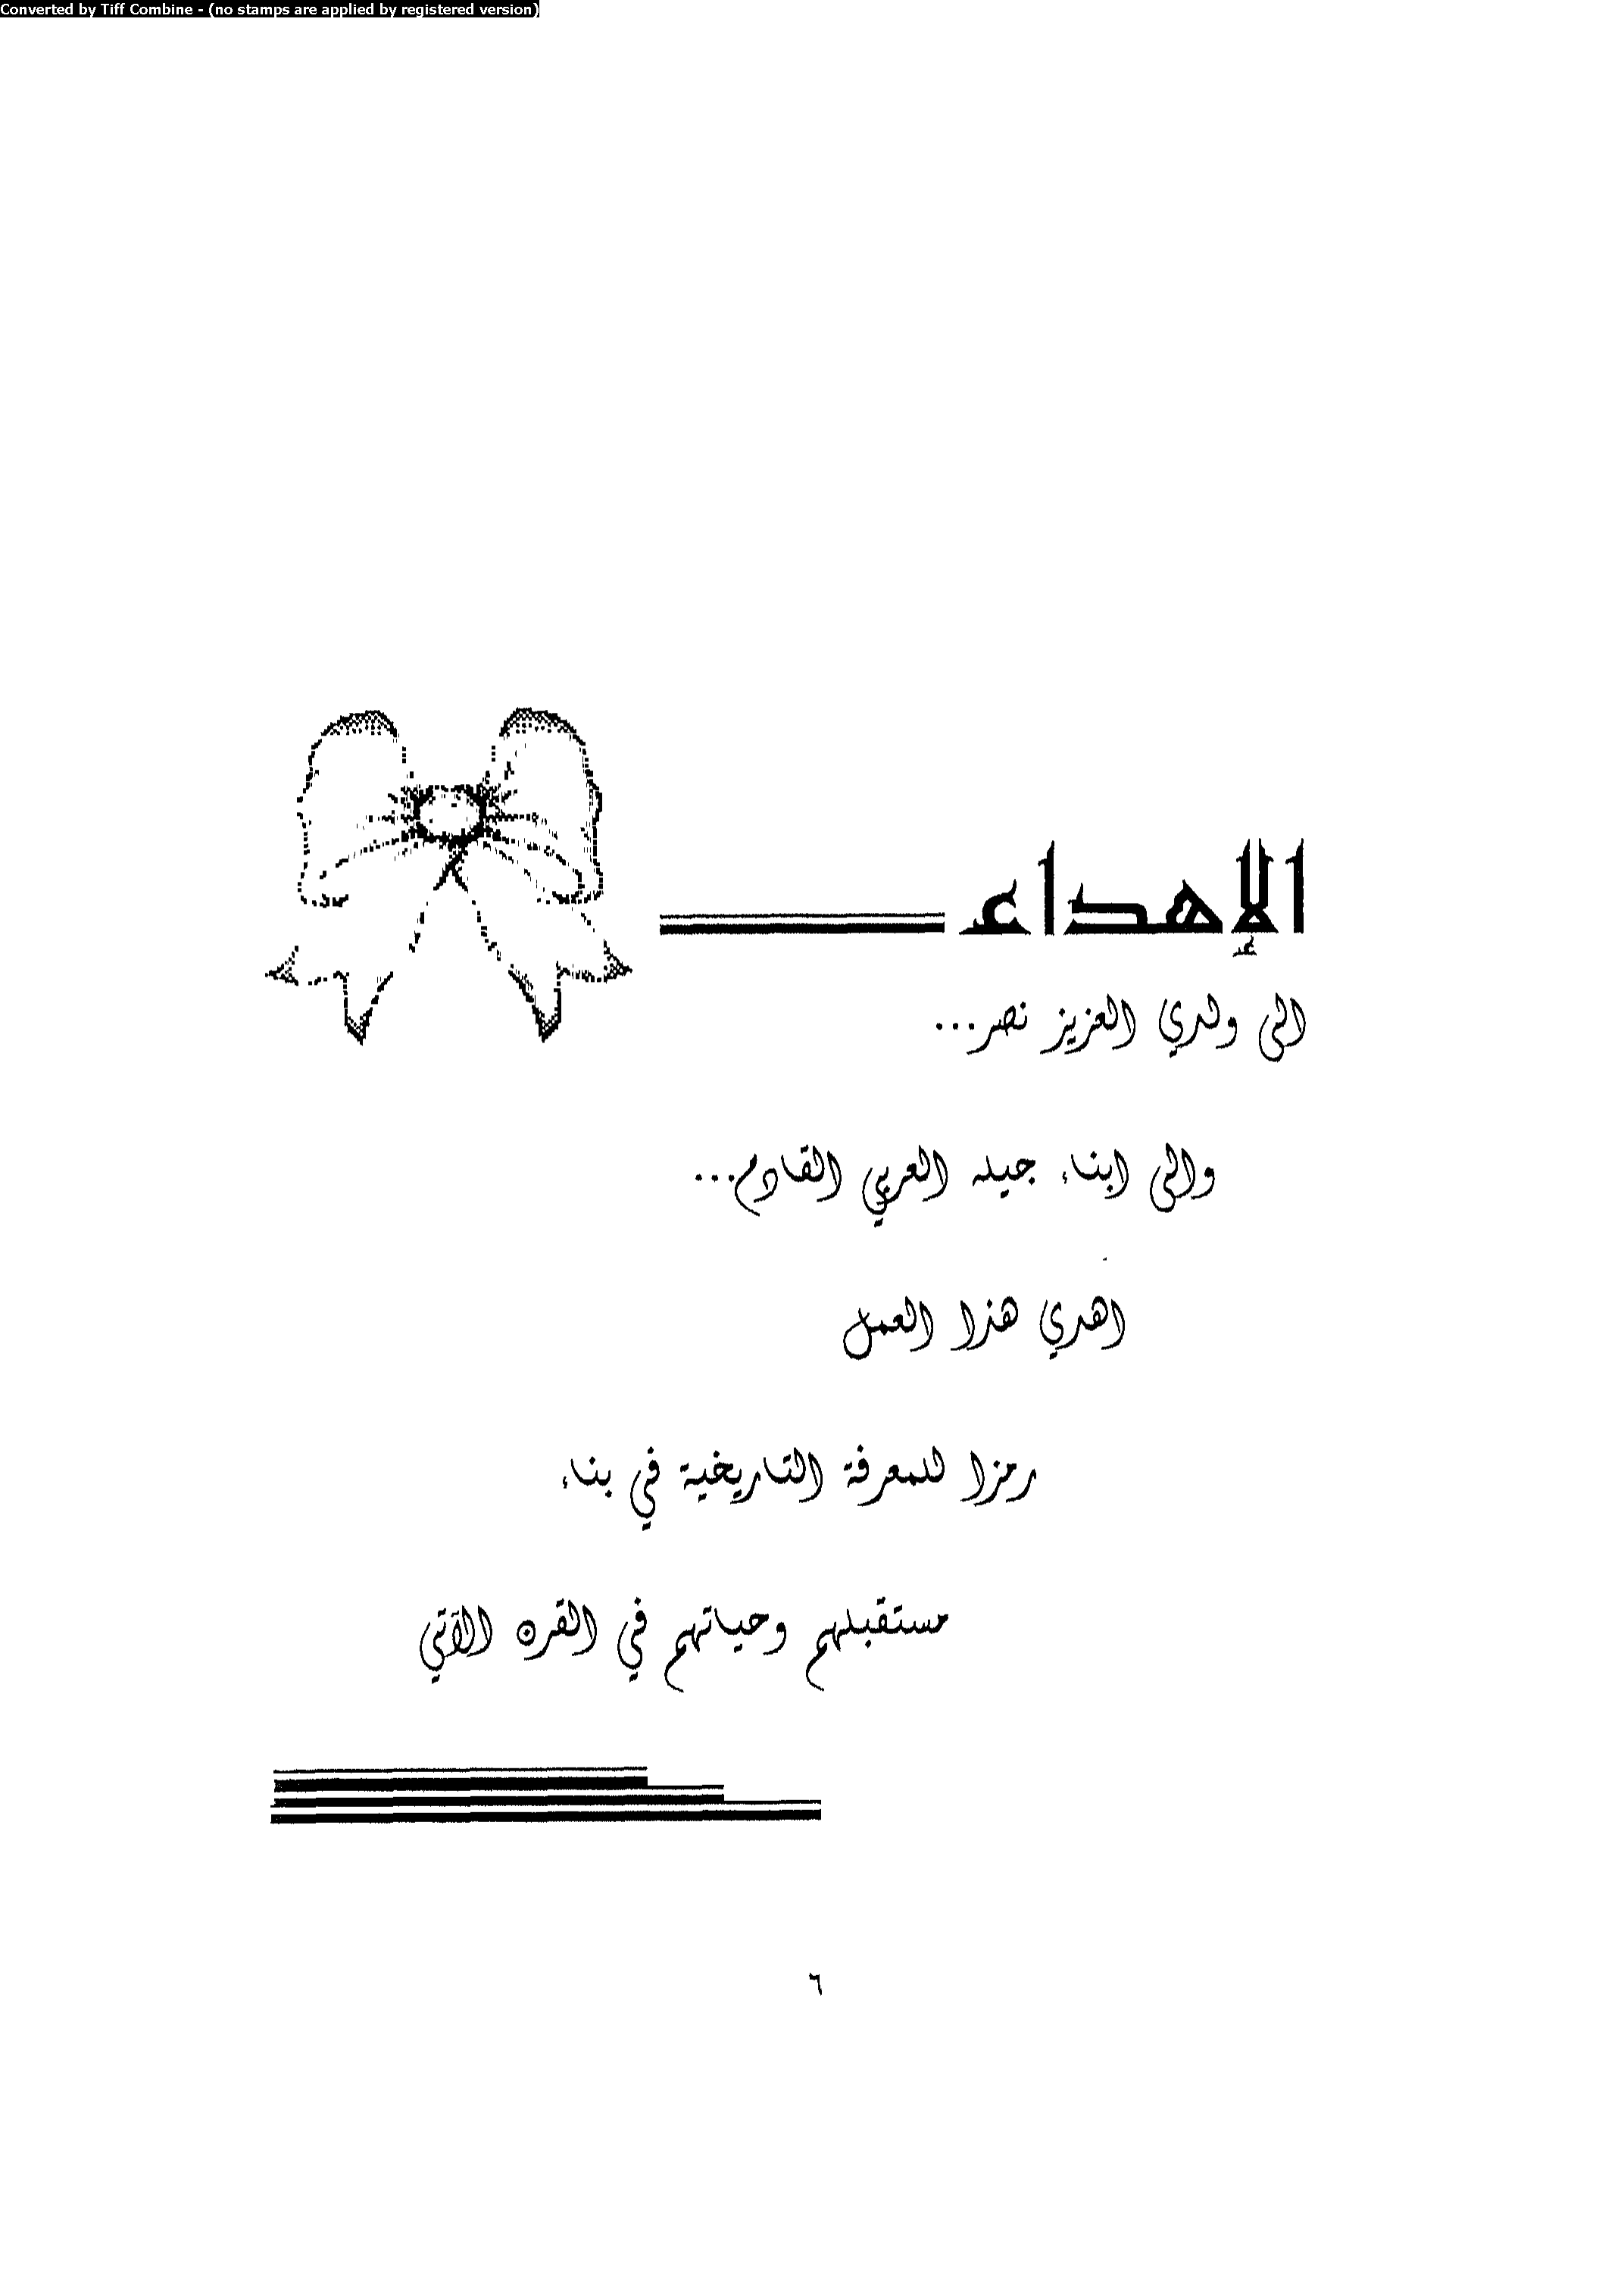 Converted by Tiff Combine - (no stamps are applied by registered version)
الإهداء
الى ولدي العزيز نصر...
والى ابناء جيله العربي القادم...
اهدي هذا العمل
رمزا للمعرفة التاريخية في بناء
مستقبلهم وحياتهم في القرن الآتي
٦